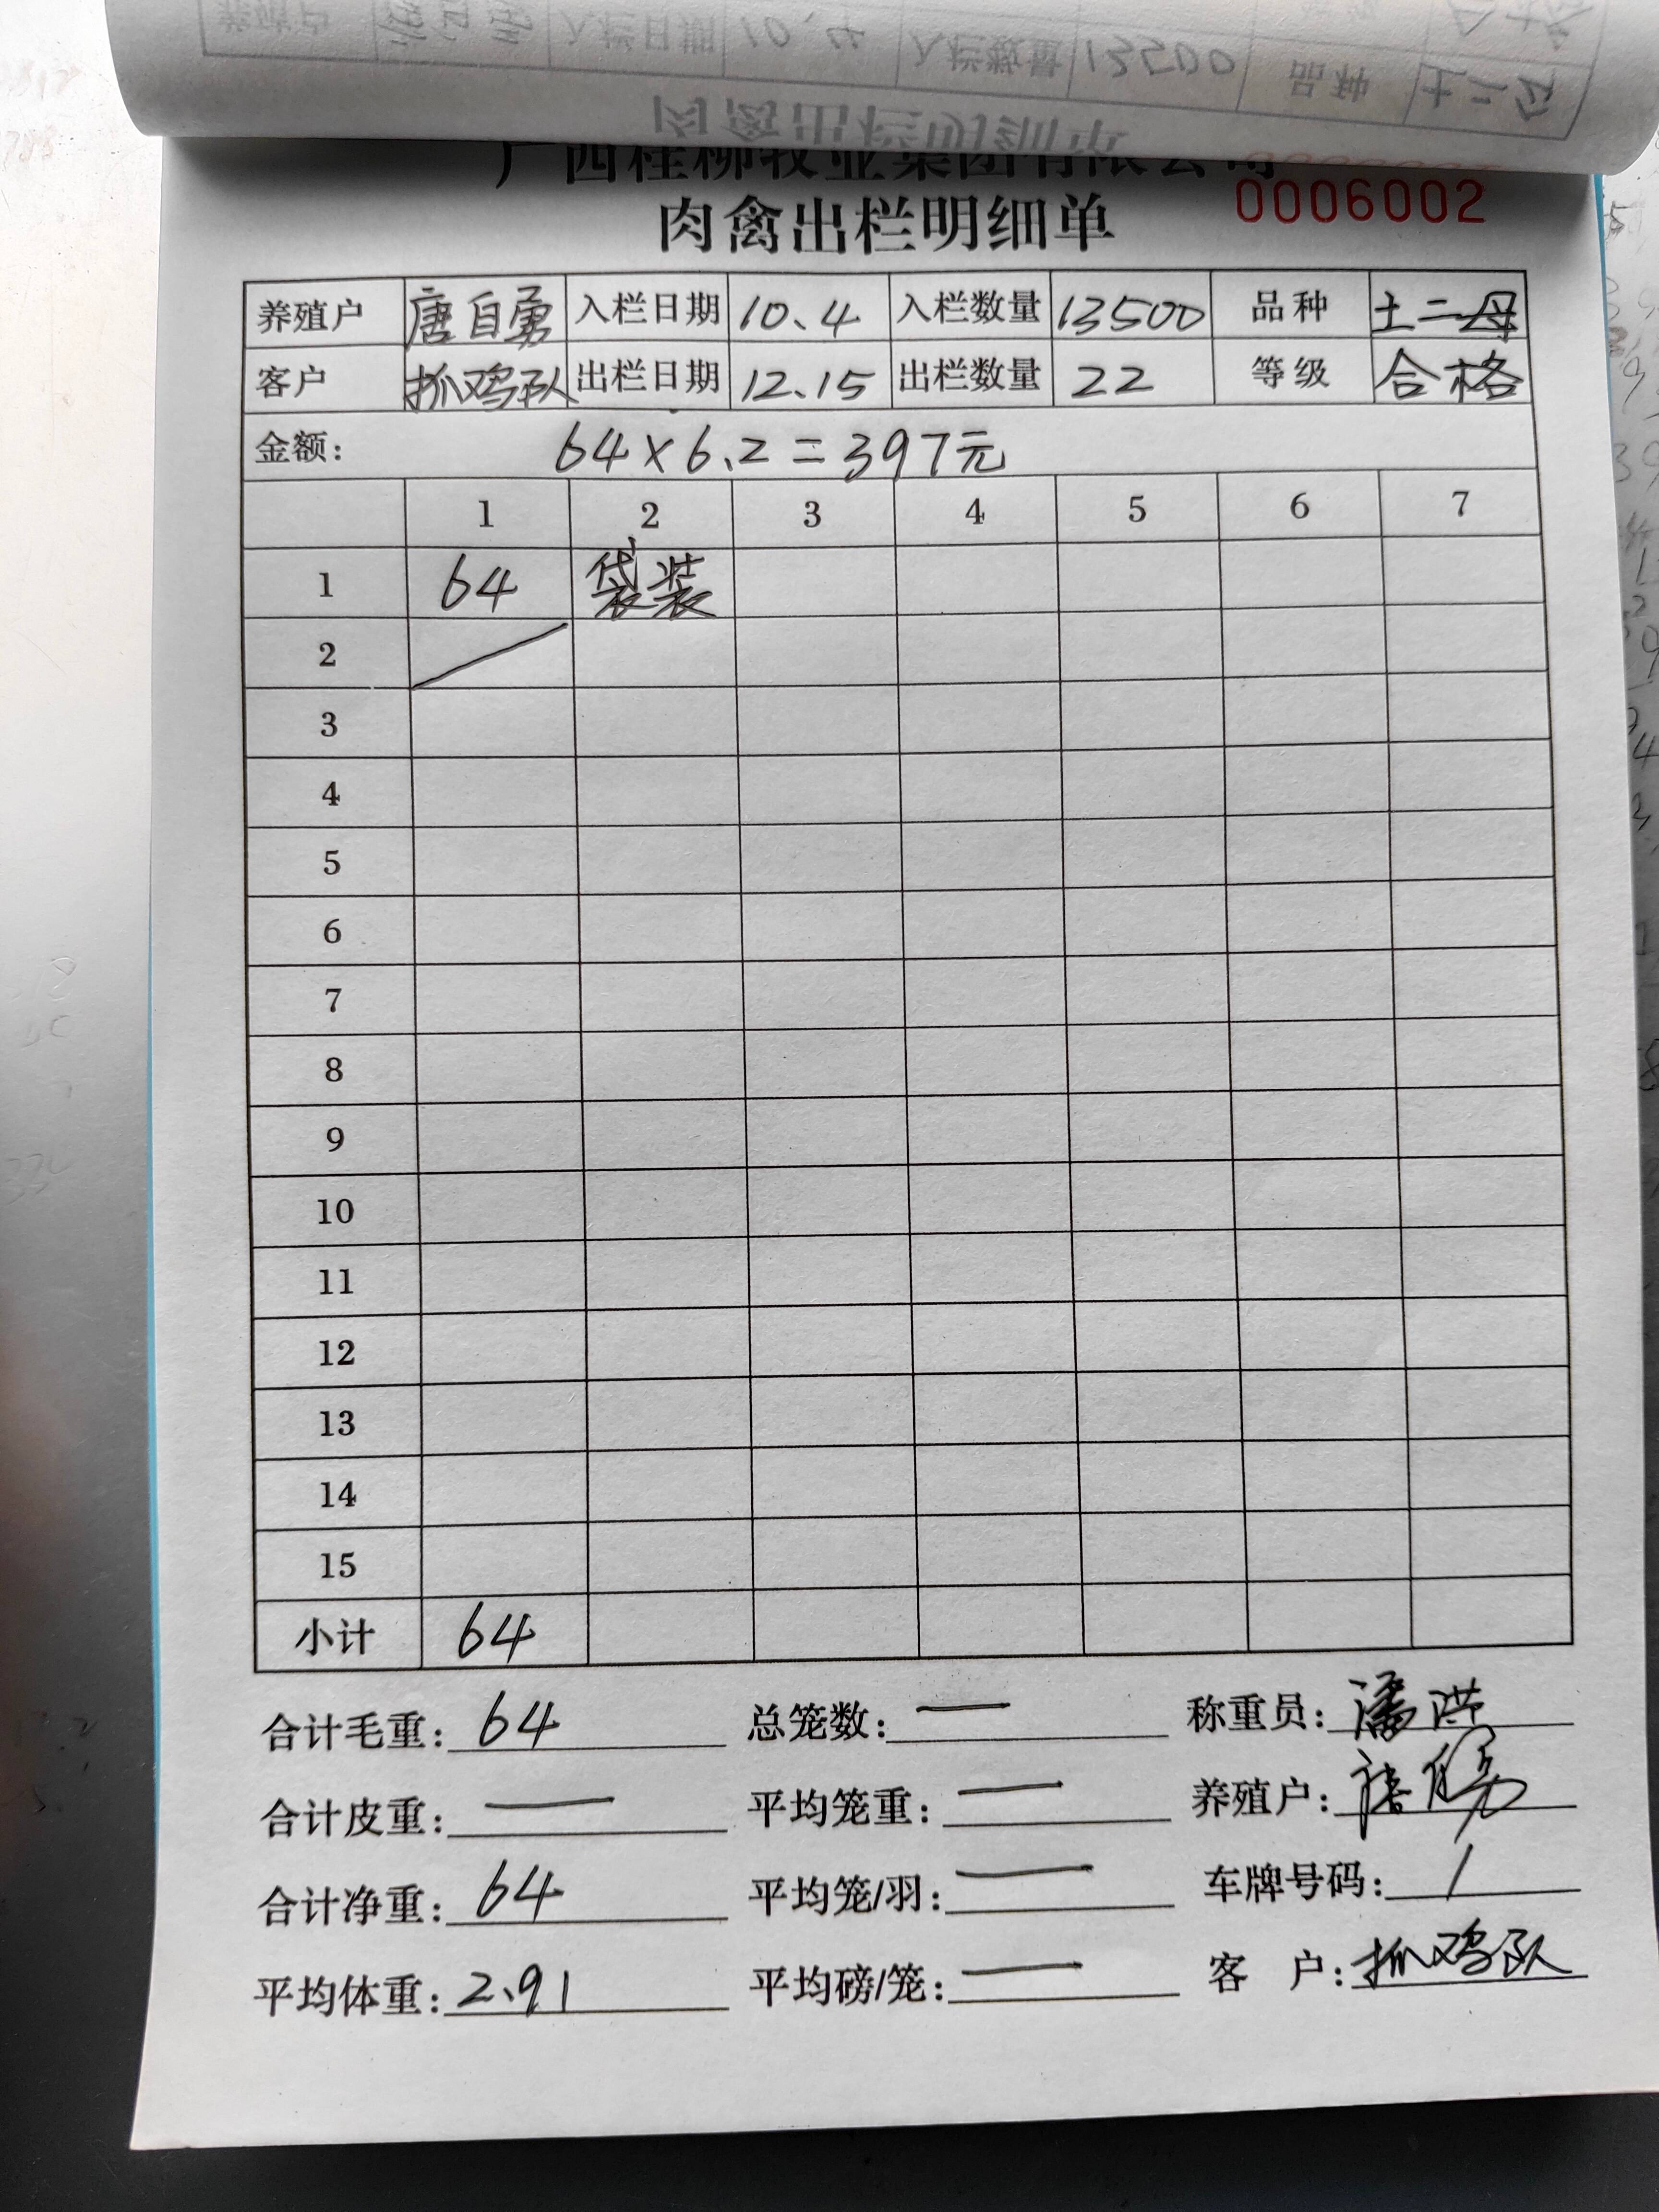 广西桂柳牧业集团有限公司
肉禽出栏明细单 0006002
养殖户 唐自勇 入栏日期 10.4 入栏数量 13500 品种 土二母
客户 抓鸡队 出栏日期 12.15 出栏数量 22 等级 合格
金额: 64×6.2=397元
1 2 3 4 5 6 7
1 64 袋装
2
3
4
5
6
7
8
9
10
11
12
13
14
15
小计 64
合计毛重: 64 总笼数: — 称重员: 潘洪
合计皮重: — 平均笼重: — 养殖户: 唐自勇
合计净重: 64 平均笼/羽: — 车牌号码: /
平均体重: 2.91 平均磅/笼: — 客 户: 抓鸡队